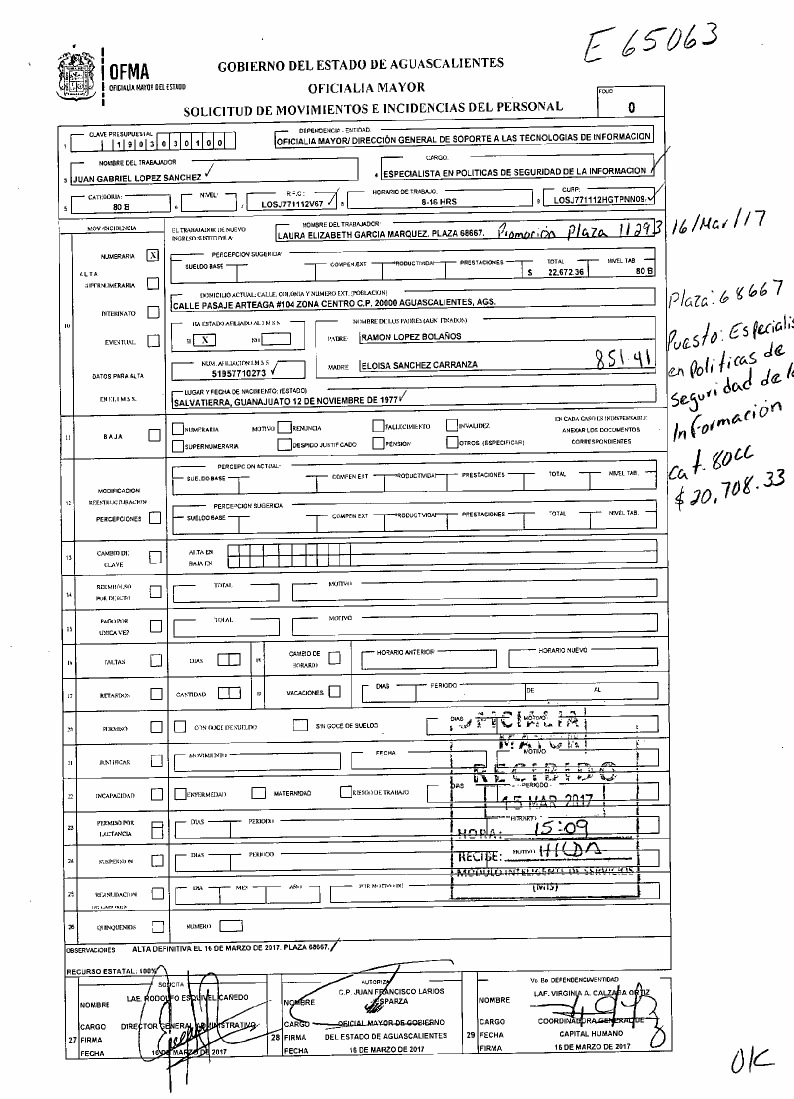 E 65063
OFMA
OFICIALIA MAYOR DEL ESTADO
GOBIERNO DEL ESTADO DE AGUASCALIENTES
OFICIALIA MAYOR
SOLICITUD DE MOVIMIENTOS E INCIDENCIAS DEL PERSONAL
FOLIO
0
CLAVE PRESUPUESTAL
1 1 9 0 3 0 3 0 1 0 0
DEPENDENCIA - ENTIDAD:
OFICIALIA MAYOR/ DIRECCIÓN GENERAL DE SOPORTE A LAS TECNOLOGIAS DE INFORMACION
NOMBRE DEL TRABAJADOR
3 JUAN GABRIEL LOPEZ SANCHEZ
CARGO:
4 ESPECIALISTA EN POLITICAS DE SEGURIDAD DE LA INFORMACION
CATEGORIA:
5 80 B
NIVEL:
6
R.F.C:
LOSJ771112V67
HORARIO DE TRABAJO.
8 8-16 HRS
CURP:
9 LOSJ771112HGTPNN09
MOV/INCIDENCIA
EL TRABAJADOR DE NUEVO
INGRESO SUSTITUYE A:
NOMBRE DEL TRABAJADOR:
LAURA ELIZABETH GARCIA MARQUEZ. PLAZA 68667. Promoción Plaza 11293
16/Mar/17
NUMERARIA X
ALTA
SUPERNUMERARIA
PERCEPCION SUGERIDA
SUELDO BASE COMPEN.EXT PRODUCTIVIDAD PRESTACIONES TOTAL NIVEL TAB
$ 22,672.36 80 B
DOMICILIO ACTUAL: CALLE, COLONIA Y NUMERO EXT. (POBLACION)
CALLE PASAJE ARTEAGA #104 ZONA CENTRO C.P. 20000 AGUASCALIENTES, AGS.
Plaza: 68667
Puesto: Especialis
en Politicas de
Seguridad de la
Información
Cat. 80CC
$ 20,708.33
10
INTERINATO
EVENTUAL
HA ESTADO AFILIADO AL I M S S
SI X NO
NOMBRE DE LOS PADRES (AUN FINADOS)
PADRE: RAMON LOPEZ BOLAÑOS
DATOS PARA ALTA
NUM. AFILIACION I M S S
51957710273
MADRE ELOISA SANCHEZ CARRANZA
851.41
EN EL I M S S.
LUGAR Y FECHA DE NACIMIENTO: (ESTADO)
SALVATIERRA, GUANAJUATO 12 DE NOVIEMBRE DE 1977
11 BAJA
NUMERARIA MOTIVO RENUNCIA FALLECIMIENTO INVALIDEZ
SUPERNUMERARIA DESPIDO JUSTIFICADO PENSIÓN OTROS (ESPECIFICAR)
EN CADA CASO ES INDISPENSABLE
ANEXAR LOS DOCUMENTOS
CORRESPONDIENTES
12
MODIFICACION
REESTRUCTURACION
PERCEPCIONES
PERCEPCION ACTUAL:
SUELDO BASE COMPEN EXT PRODUCTIVIDAD PRESTACIONES TOTAL NIVEL TAB.
PERCEPCION SUGERIDA
SUELDO BASE COMPEN EXT PRODUCTIVIDAD PRESTACIONES TOTAL NIVEL TAB.
13 CAMBIO DE
CLAVE
ALTA EN
BAJA EN
14 REEMBOLSO
POR DESCTO
TOTAL MOTIVO
15 PAGO POR
UNICA VEZ
TOTAL MOTIVO
16 FALTAS DIAS
CAMBIO DE
HORARIO
HORARIO ANTERIOR HORARIO NUEVO
17 RETARDOS CANTIDAD
VACACIONES
DIAS PERIODO DE AL
20 PERMISO CON GOCE DE SUELDO SIN GOCE DE SUELDO DIAS MOTIVO
OFICIALIA
MAYOR
RECIBIDO
15 MAR 2017
HORA: 15:09
RECIBE: HILDA
MODULO INTELIGENTE DE SERVICIOS
(MIS)
21 JUSTIFICAR MOVIMIENTO FECHA MOTIVO
22 INCAPACIDAD ENFERMEDAD MATERNIDAD RIESGO DE TRABAJO DIAS PERIODO
23 PERMISO POR
LACTANCIA
DIAS PERIODO HORARIO
24 SUSPENSION DIAS PERIODO MOTIVO
25 REANUDACION
DE LABORES
DIA MES AÑO POR MOTIVO DE
26 QUINQUENIOS NUMERO
OBSERVACIONES ALTA DEFINITIVA EL 16 DE MARZO DE 2017. PLAZA 68667.
RECURSO ESTATAL: 100%
SOLICITA
NOMBRE LAE. RODOLFO ESQUIVEL CANEDO
CARGO DIRECTOR GENERAL ADMINISTRATIVO
27 FIRMA
FECHA 16 DE MARZO DE 2017
AUTORIZA
NOMBRE C.P. JUAN FRANCISCO LARIOS
ESPARZA
CARGO OFICIAL MAYOR DE GOBIERNO
28 FIRMA DEL ESTADO DE AGUASCALIENTES
FECHA 16 DE MARZO DE 2017
Vo Bo DEPENDENCIA/ENTIDAD
NOMBRE LAF. VIRGINIA A. CALZADA ORTIZ
CARGO COORDINADORA GENERAL DE
29 FECHA CAPITAL HUMANO
FIRMA 16 DE MARZO DE 2017
OK